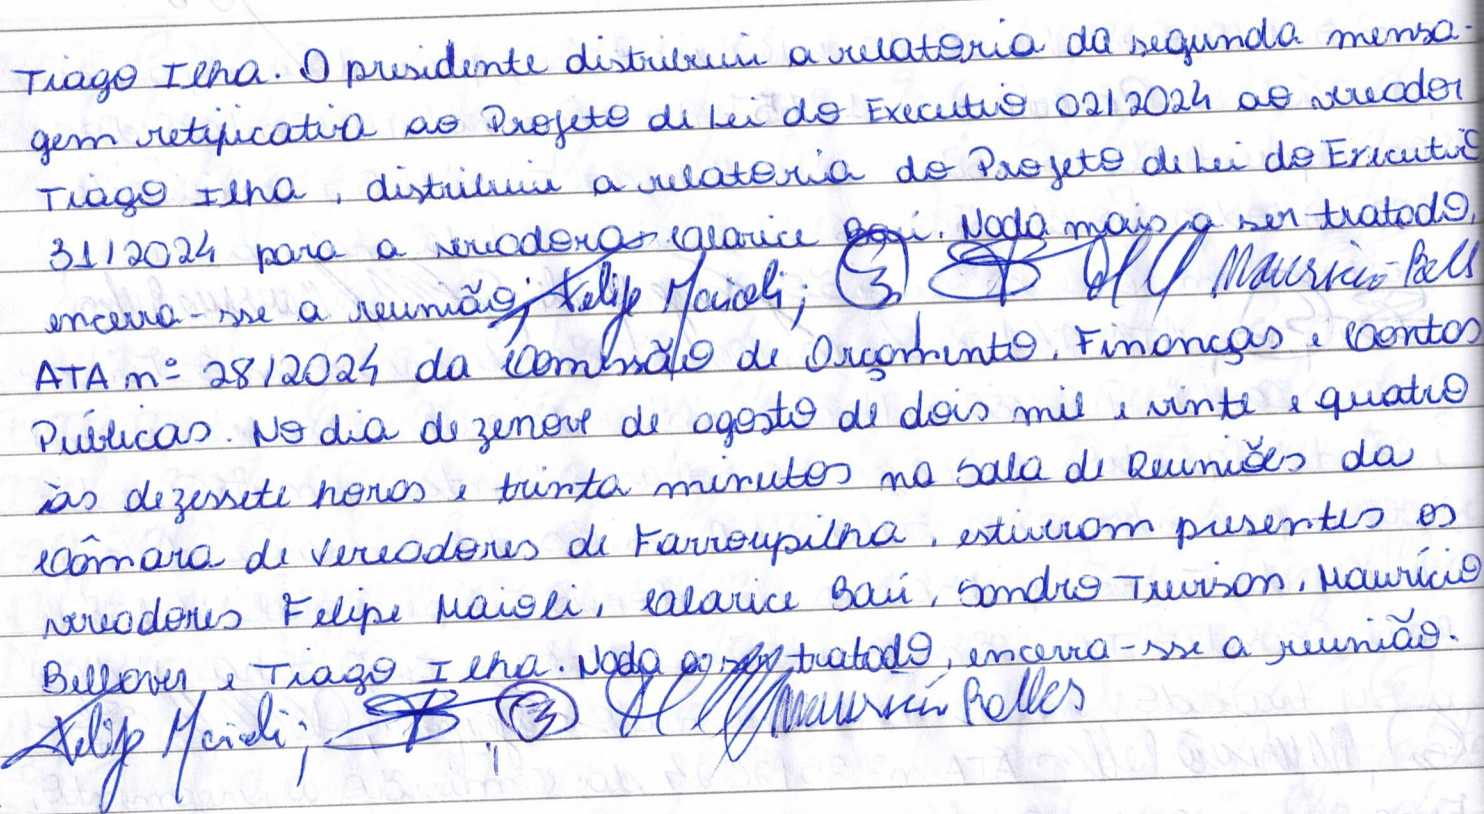 Tiago Ilha. O presidente distribuiu a relatoria da segunda mensa-
gem retificativa ao Projeto de Lei do Executivo 02/2024 ao vereador
Tiago Ilha, distribuiu a relatoria do Projeto de Lei do Executivo
31/2024 para a vereadora Clarice Baú. Nada mais a ser tratado,
encerra-se a reunião; Felipe Maioli; Mauricio Bell
ATA nº 28/2024 da Comissão de Orçamento, Finanças e Contas
Públicas. No dia dezenove de agosto de dois mil e vinte e quatro
às dezessete horas e trinta minutos na Sala de Reuniões da
Câmara de Vereadores de Farroupilha, estiveram presentes os
vereadores Felipe Maioli, Clarice Baú, Sandro Trevisan, Maurício
Bellaver e Tiago Ilha. Nada a ser tratado, encerra-se a reunião.
Felipe Maioli;